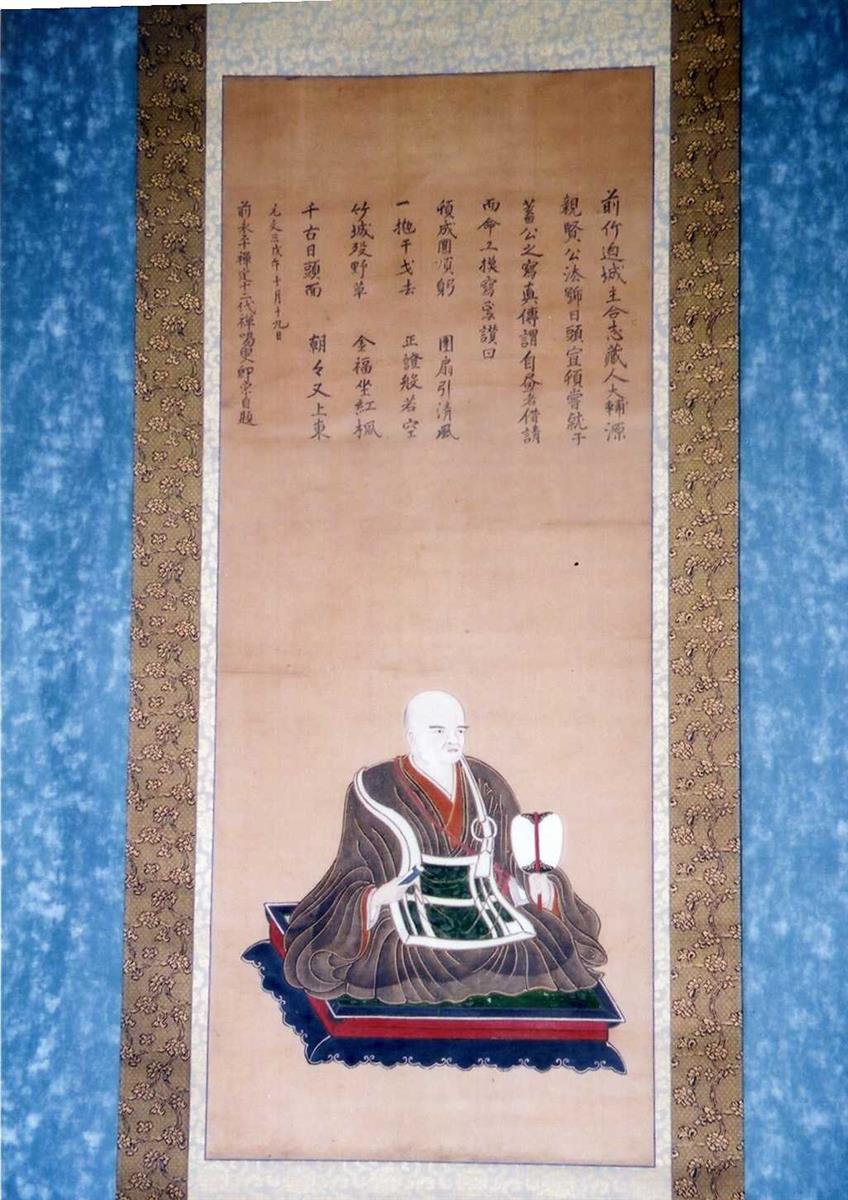 前竹迫城主合志藏人大輔源
親賢公法號日頭宣頓嘗就于
蓄公之寫真傳謂自畫者借請
而命工模寫爰讃曰
頓成圓頂躬 團扇引清風
一抛干戈去 正證般若空
竹城殁野草 金福坐紅楓
千古日頭面 朝々又上東
元文三戊午十月十九日
前永平禪定十二代禅喝叟即宗自題